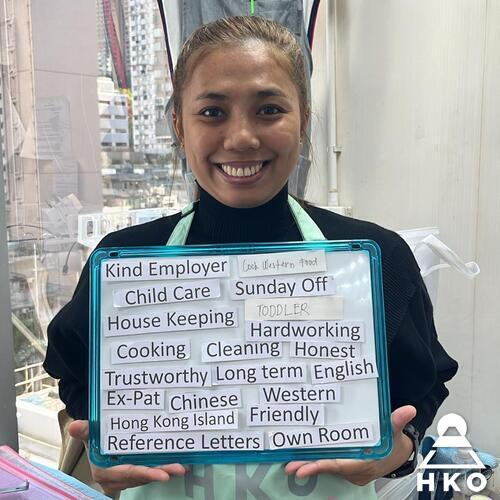 Kind Employer Cook Western food
Child Care Sunday Off
House Keeping TODDLER
Hardworking
Cooking Cleaning Honest
Trustworthy Long term English
Ex-Pat Chinese Western
Hong Kong Island Friendly
Reference Letters Own Room
HKO
HKO